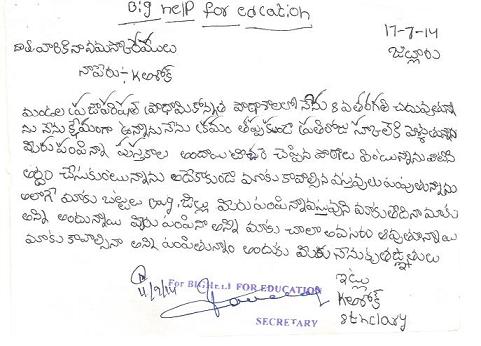 Big help for edcation
17-7-14
జిల్లూరు
దాత వారికి నా నమస్కారములు
నాపేరు :- K అశోక్
మండల ప్రజాపరిషత్ ప్రాథమికోన్నత పాఠశాలలో నేను 8 వ తరగతి చదువుతున్నా
ను నేను క్షేమంగా ఉన్నాను నేను క్రమం తప్పకుండా ప్రతిరోజు స్కూల్‌కి వెళ్తున్నాను
మీరు పంపిన్నా పుస్తకాలు అందాయి చెప్పిన పాఠాలు వింటున్నాను వాటిని
అర్థం చేసుకుంటున్నాను అదేకాకుండా మాకు కావాల్సిన వస్తువులు పంపుతున్నారు
అలాగే మాకు బట్టలు బ్యాగ్, మీరు పంపిన్నా వస్తువుని మాకు మాకు
అన్ని అందున్నాయి మీరు పంపినా అన్ని మాకు చాలా అవసరం అవుతున్నాయి
మాకు కావాల్సినా అన్ని పంపితున్నారు అందుకు మీకు నా కృతజ్ఞతలు
ఇట్లు
K అశోక్
8th class
For BIG HELP FOR EDUCATION
SECRETARY